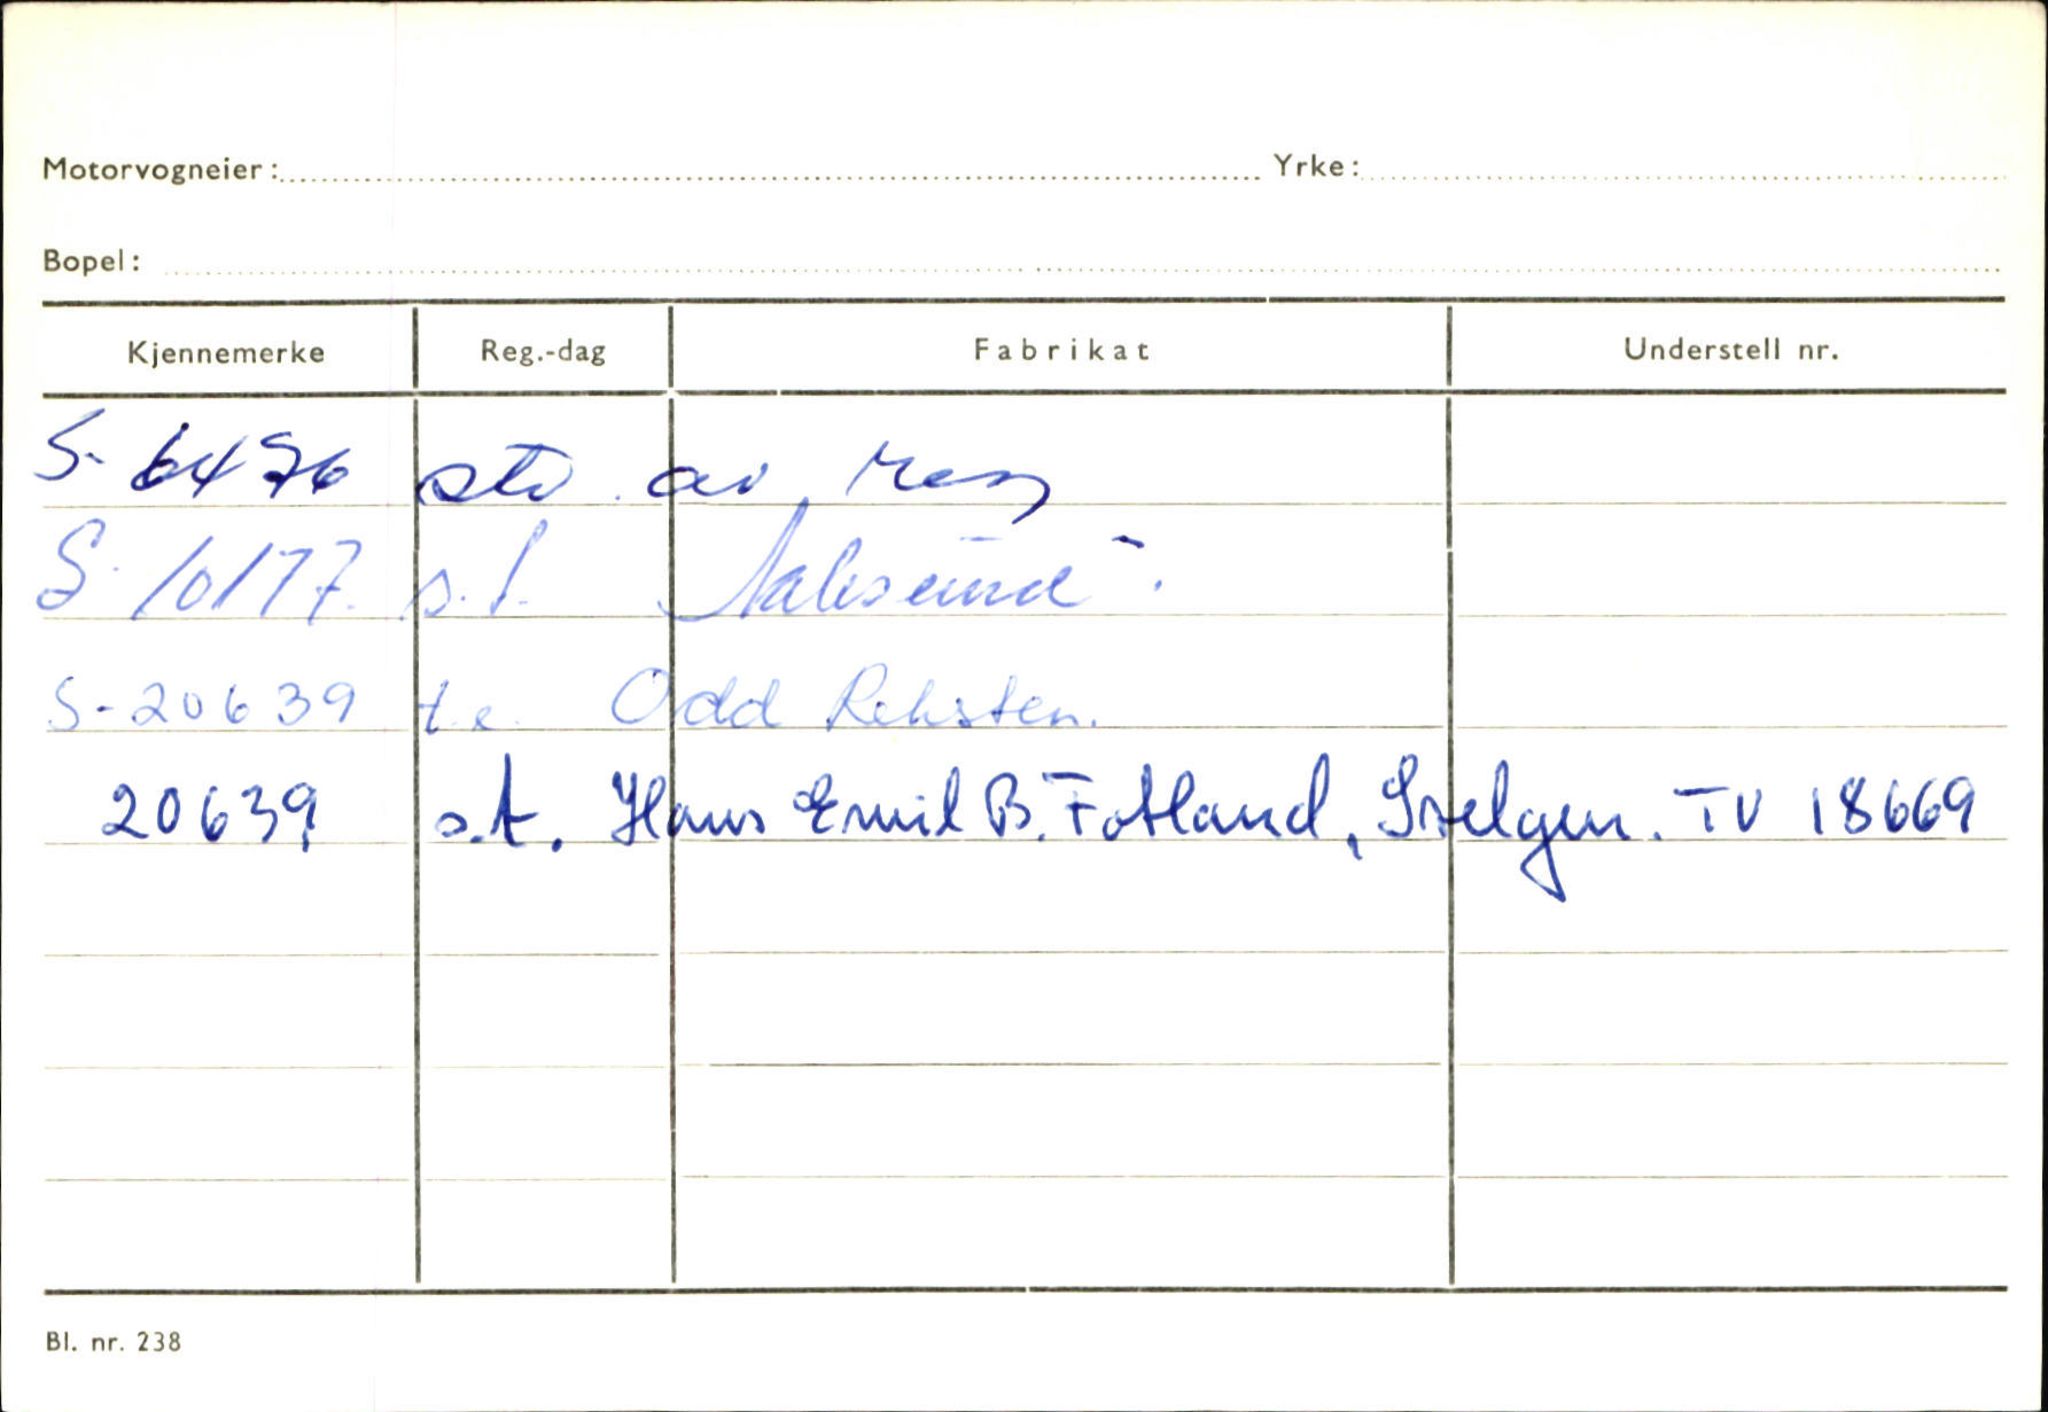 Motorvogneier: Yrke:
Bopel:
Kjennemerke Reg.-dag Fabrikat Understell nr.
S-6476 av reg
S-10177. s.t.
S-20639 t.e. Odd Rehsten.
20639 s.t. Hans Emil B. Fotland, Svelgen. TV 18669
Bl. nr. 238